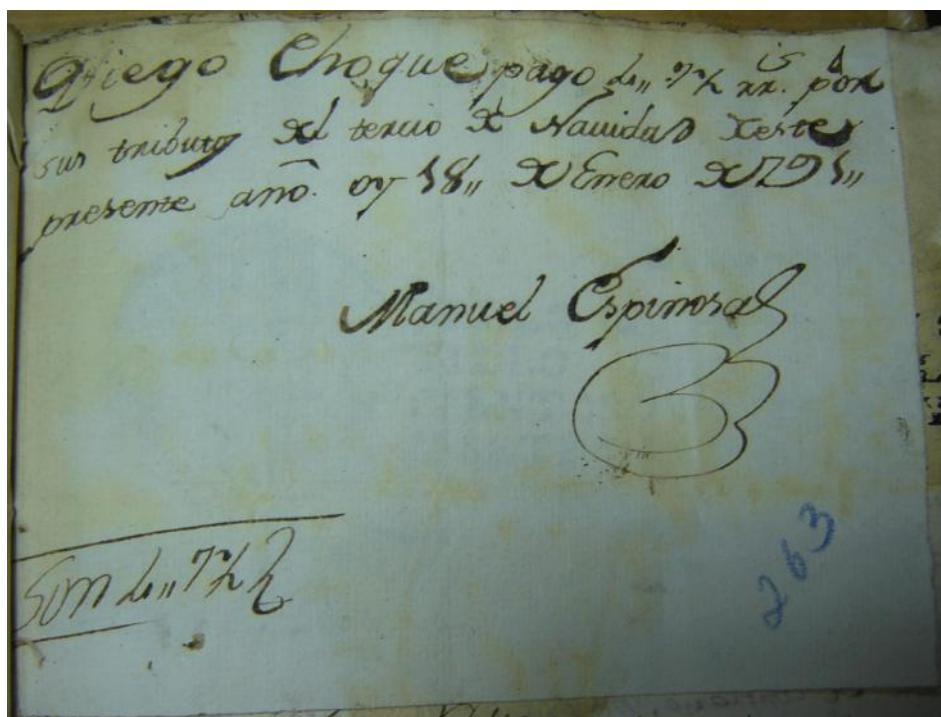 Diego Choque pago 4,, 7½ rr.s por
sus tributos del tercio de Navidad deste
presente año. oy 18,, de Enero de 791,,
Manuel Espinosa
Son 4,, 7½ r
263